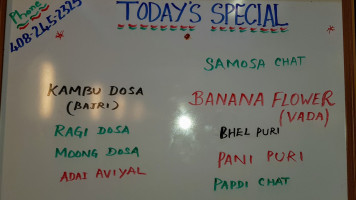 Phone
408-245-2325
TODAY'S SPECIAL
SAMOSA CHAT
KAMBU DOSA
(BAJRI)
BANANA FLOWER
(VADA)
RAGI DOSA
BHEL PURI
MOONG DOSA
PANI PURI
ADAI AVIYAL
PAPDI CHAT